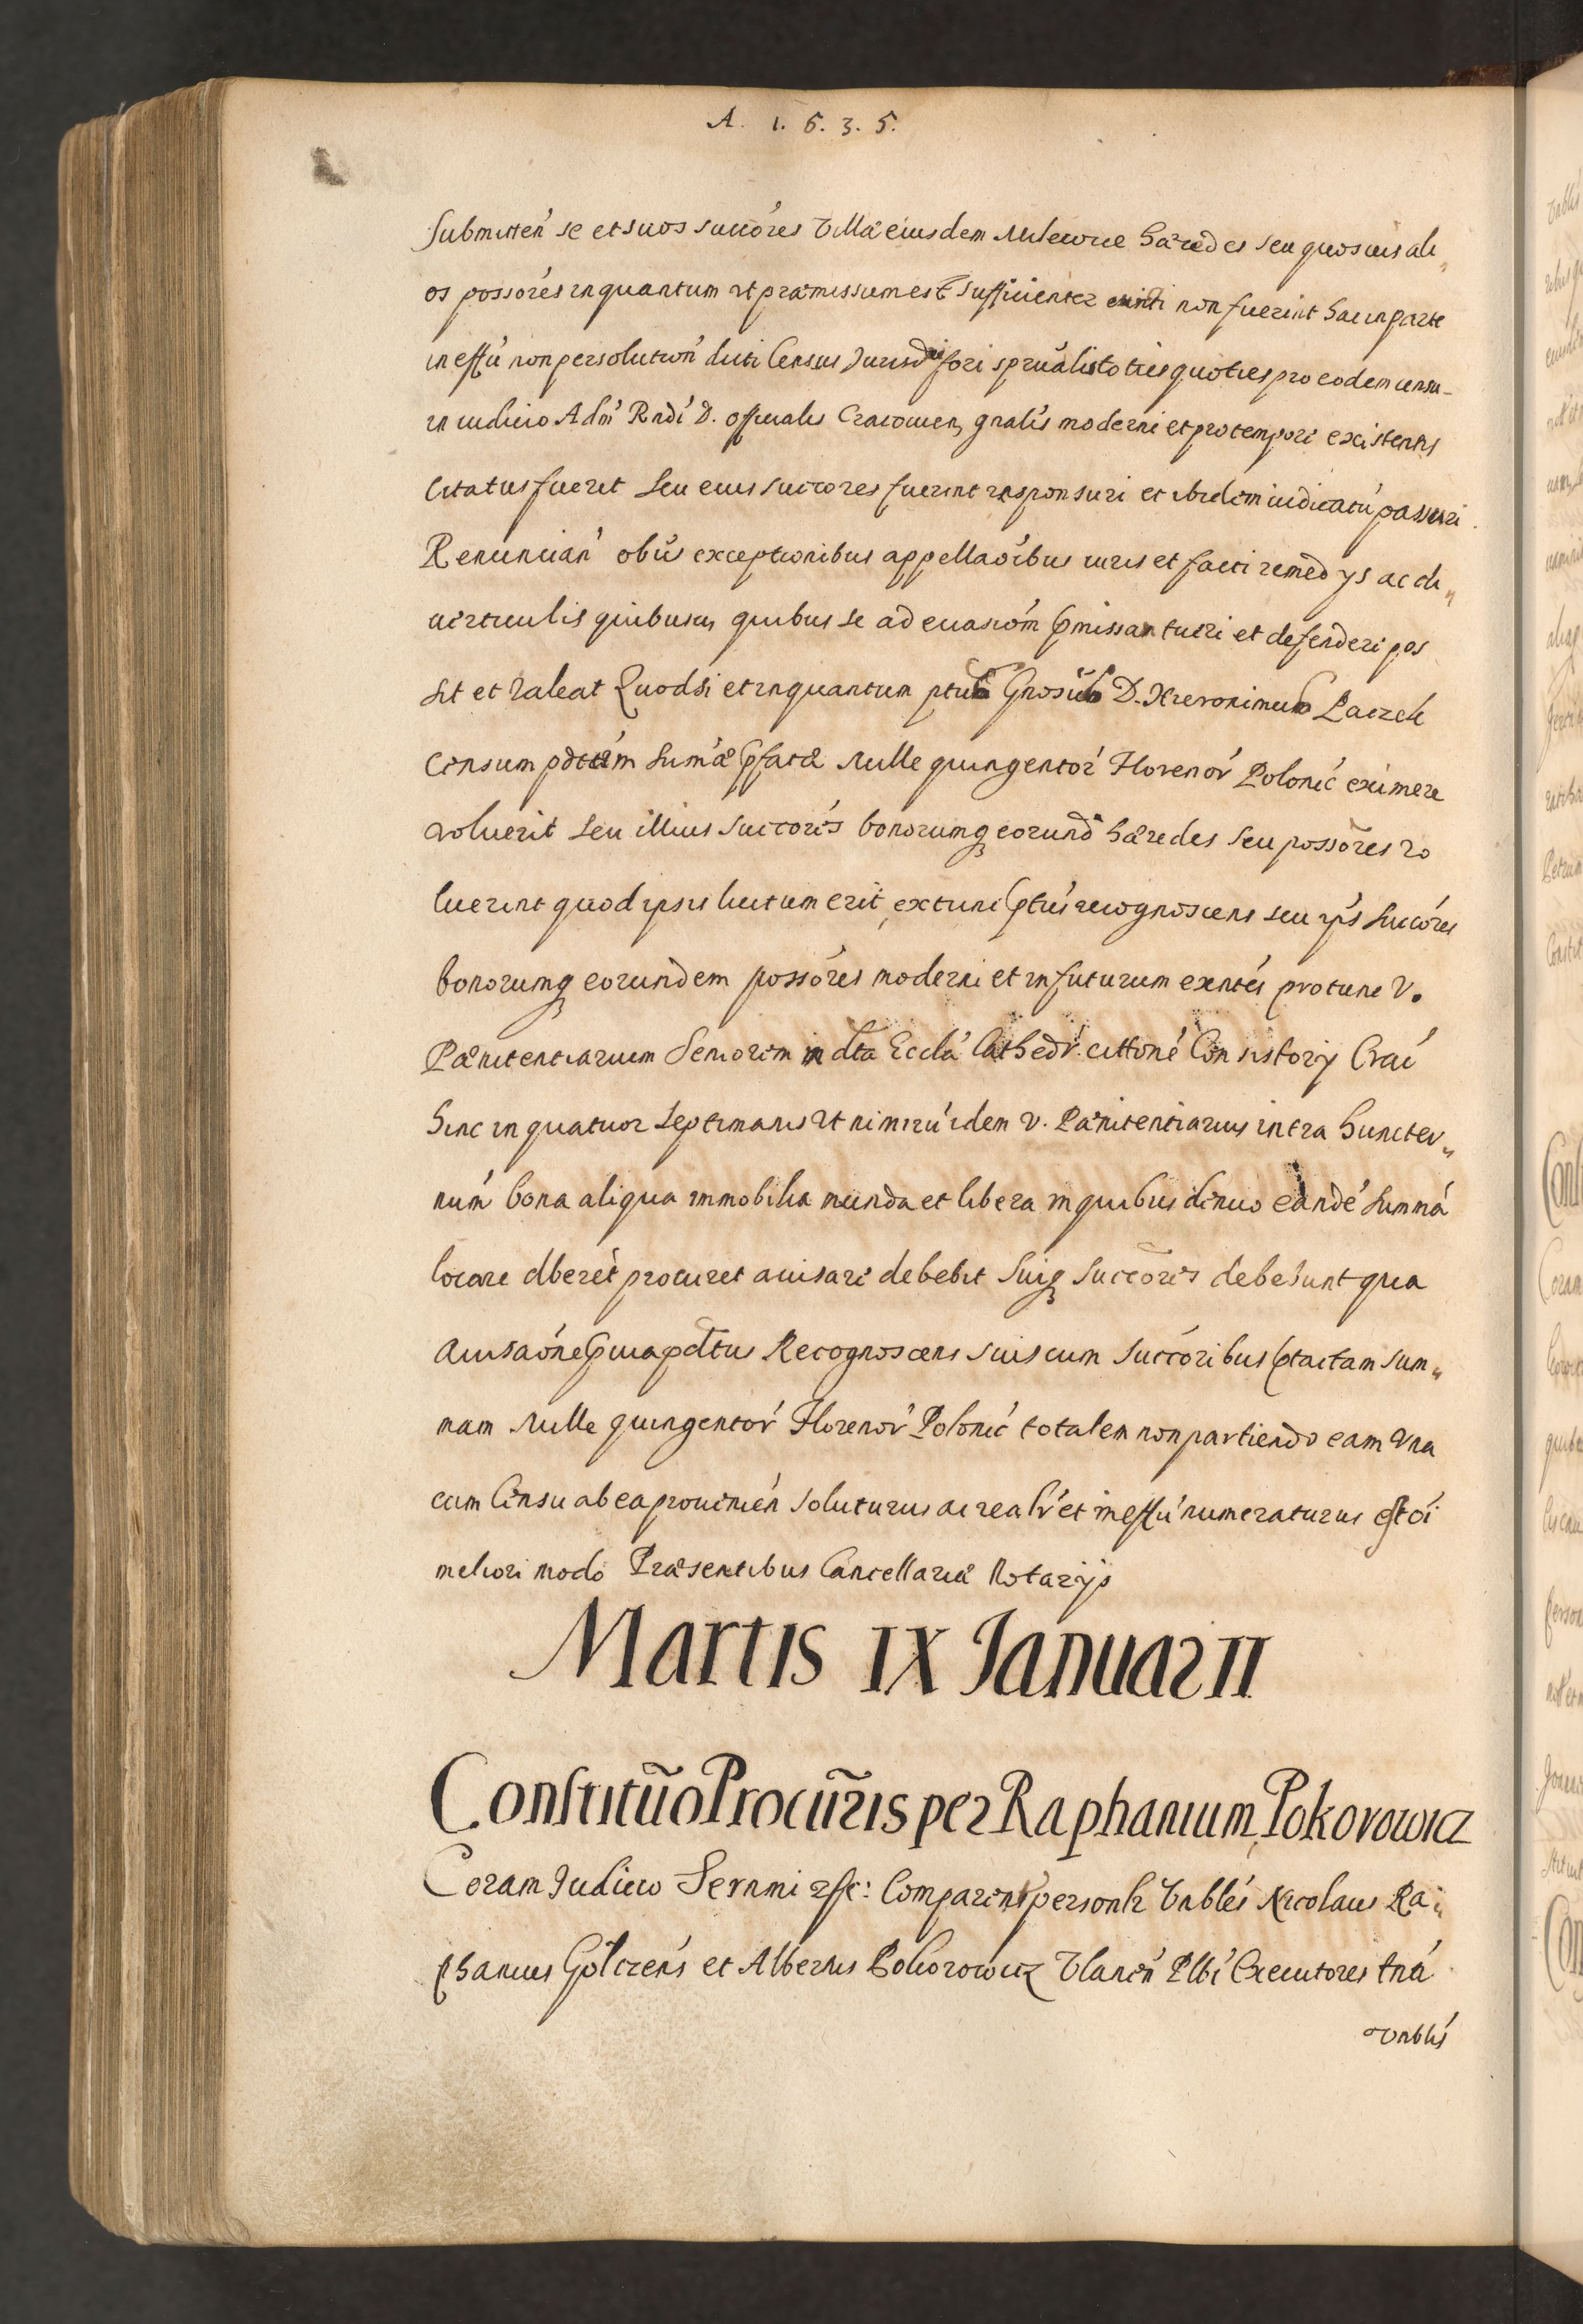 A. 1. 6. 3. 5.
Submitteń se et suos succóres Villæ eiusdem Milewice hæredes seu quosuis ali„
os possóres inquantum ut præmissum est sufficienter euicti non fuerint hac in parte
in effú non persolutioń dicti Census Jurisd̃ni fori sprũalis toties quoties pro eodem censu
in iudicio Adm̃ Rńdi D. officialis Cracouien, gnalis moderni et protempore existentis
Citatus fuerit seu eius succores fuerint responsuri et ibidem iudicatú passuri
Renuncian̓ obũs exceptionibus appellaóibus iuris et facti remedijs ac di„
uerticulis quibusuis quibus se ad euasióm p̃missan tueri et defendere pos
sit et valeat Quodsi et inquantum ptus Gnosus D. Hieronimus Paczek
Censum pdctúm sumæ p̃fatæ Mille quingentor̃ Florenor̃ Polonic̃ eximere
voluerit seu illius succorés bonorumq eorund̃ hæredes seu possõres vo
luerint quod ipsis licitum erit, extunc p̃tus recognoscens seu ipś succóres
bonorumq eorundem possóres moderni et in futurum exńtes protunc V.
Pænitentiarium Seniorem in dta Eccla̓ Cathedr̓. cittoné Consistorij Crac̓
hinc in quatuor septimanis Ut nimirú idem V. Pænitentiarius intra hunc ter„
num̓ bona aliqua immobilia munda et libera in quibus denuo eandé summá
locare dberet procuret auisare debebit suiq succorés debebunt qua
Auisaóne p̃uia pd̃tus Recognoscens suis cum succóribus p̃tactam sum„
mam Mille quingentor̓ Florenor̓ Polonic̓ totalem non partiendo eam Vna
cum Censu ab ea prouenień soluturus ac realr̓ et in effú numeraturus est oi̓
meliori modo Præsentibus Cancellariæ Notarijs
Martis IX Januarii
Constitũo Procũris per Raphanium Pokorowicz
Coram Judicio Sernmi &c: Comparens personlr Vnbles Nicolaus Ra„
phanius Golczens et Albertus Pokorowicz Vlanen̓ Plbi̓ Executores tná
Vnblis